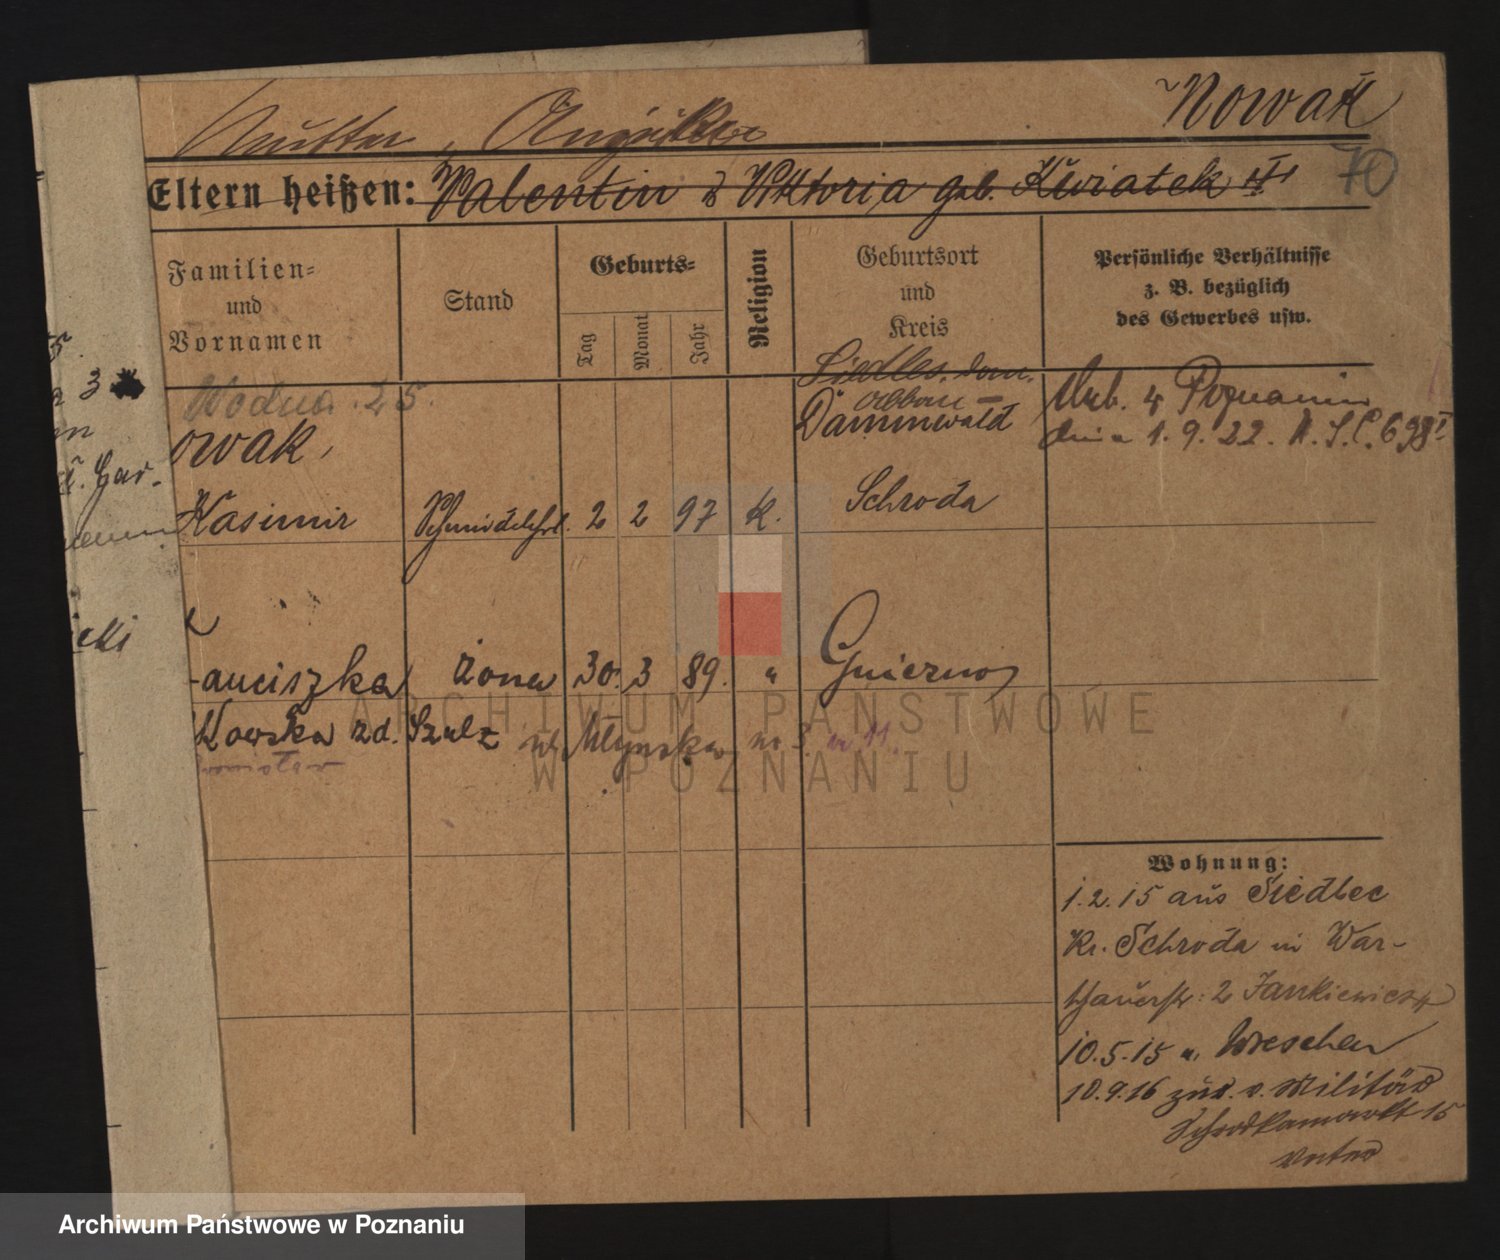 Nowak
Mutter, Angelika
70
Eltern heißen: Valentin & Viktoria geb. Kwiatek
Familien-
und
Vornamen
Stand
Geburts-
Tag
Monat
Jahr
Religion
Geburtsort
und
Kreis
Persönliche Verhältnisse
z. B. bezüglich
des Gewerbes usw.
Siedlec, dom.
Wodna 25.
abbau
Dammwald
Ślub. w Poznaniu
dnia 1.9.22. U.S.C. 698
owak,
Kasimir
Schmiedelehrl. 2 2 97 k.
Schroda
anciszka żona 30. 3 89. " Gniezno
Kowska zd. Szulz ul. Młyńska nr 3 n 11.
Wohnung:
1.2.15 aus Siedlec
Kr. Schroda in War-
schauerstr: 2 Jankiewicz
10.5.15 n. Wreschen
10.9.16 zur. v. Militär
Schrodkamarkt 15
Vater
5.
3
Gar-
icki
ARCHIWUM PAŃSTWOWE
W POZNANIU
Archiwum Państwowe w Poznaniu